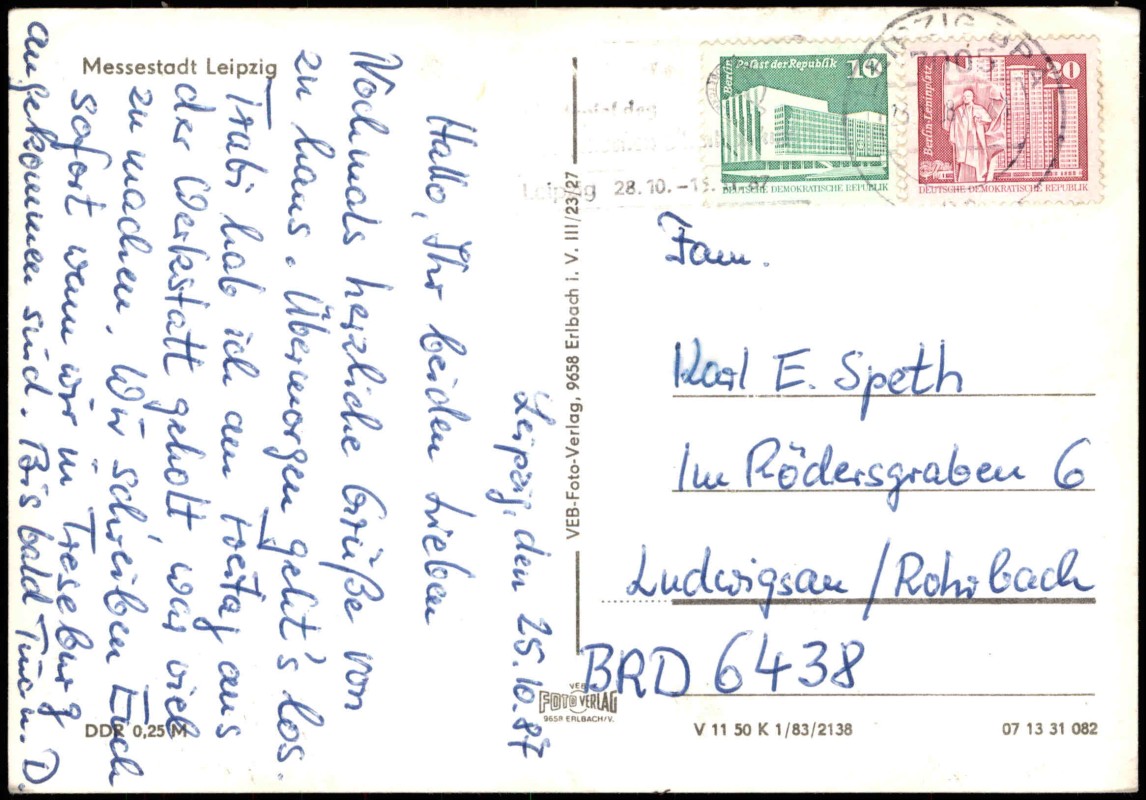 Messestadt Leipzig
Leipzig, den 25.10.87
Hallo, Ihr beiden Lieben
Nochmals herzliche Grüße von
zu haus. Übermorgen geht's los.
Trabi hab ich am Freitag aus
der Werkstatt geholt war viel
zu machen. Wir schreiben Euch
sofort wenn wir in Treseburg
angekommen sind. Bis bald
DDR 0,25 M
VEB-Foto-Verlag, 9658 Erlbach i. V. III/23/27
VEB
FOTO VERLAG
9658 ERLBACH/V.
Leipzig 28.10.-
Berlin Palast der Republik 10
DEUTSCHE DEMOKRATISCHE REPUBLIK
Berlin-Leninplatz 20
DEUTSCHE DEMOKRATISCHE REPUBLIK
Fam.
Karl E. Speth
Im Rödersgraben 6
Ludwigsau / Rohrbach
BRD 6438
V 11 50 K 1/83/2138
07 13 31 082